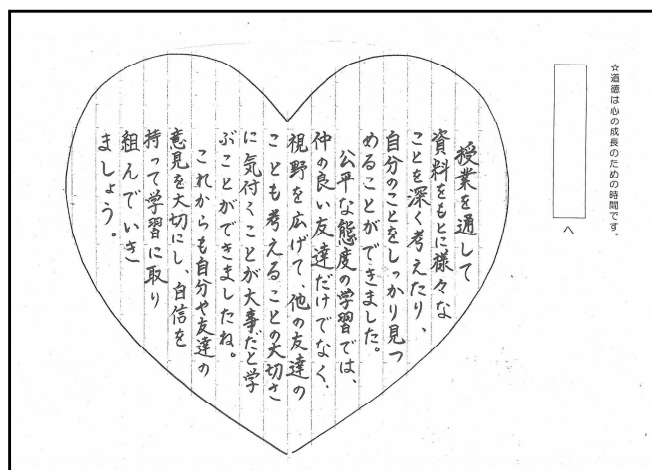 ☆道徳は心の成長のための時間です。
へ
授業を通して
資料をもとに様々な
ことを深く考えたり、
自分のことをしっかり見つ
めることができました。
公平な態度の学習では、
仲の良い友達だけでなく、
視野を広げて、他の友達の
ことも考えることの大切さ
に気付くことが大事だと学
ぶことができましたね。
これからも自分や友達の
意見を大切にし、自信を
持って学習に取り
組んでいき
ましょう。